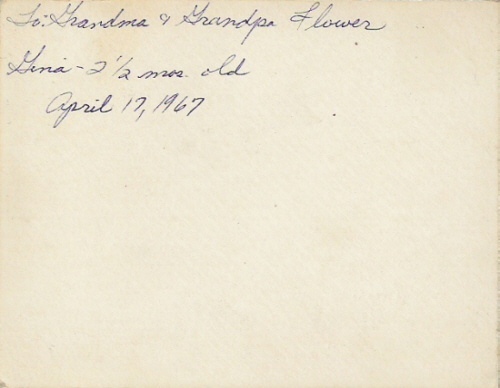 To: Grandma & Grandpa Flower
Gina - 2 1/2 mos. old
April 17, 1967